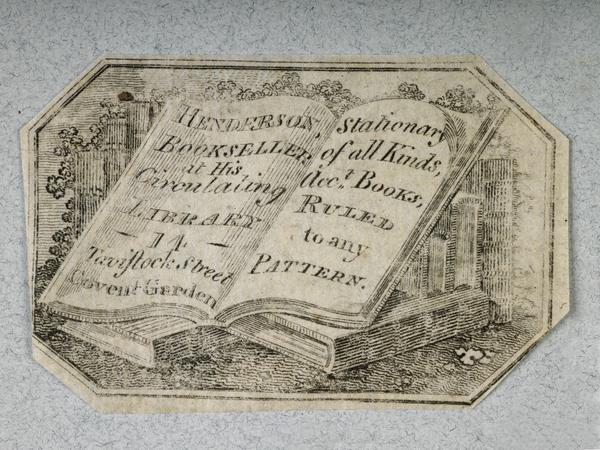 HENDERSON,
BOOKSELLER
at His
Circulating
LIBRARY
— 14 —
Taviſtock Street
Covent Garden
Stationary
of all Kinds,
Acct. BOOKS,
RULED
to any
PATTERN.